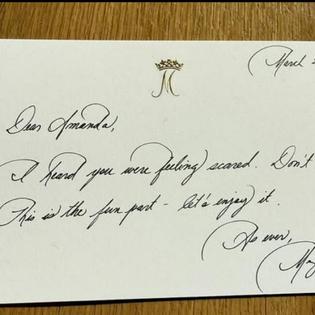 March
Dear Amanda,
I heard you were feeling scared. Don't
This is the fun part - let's enjoy it.
As ever,